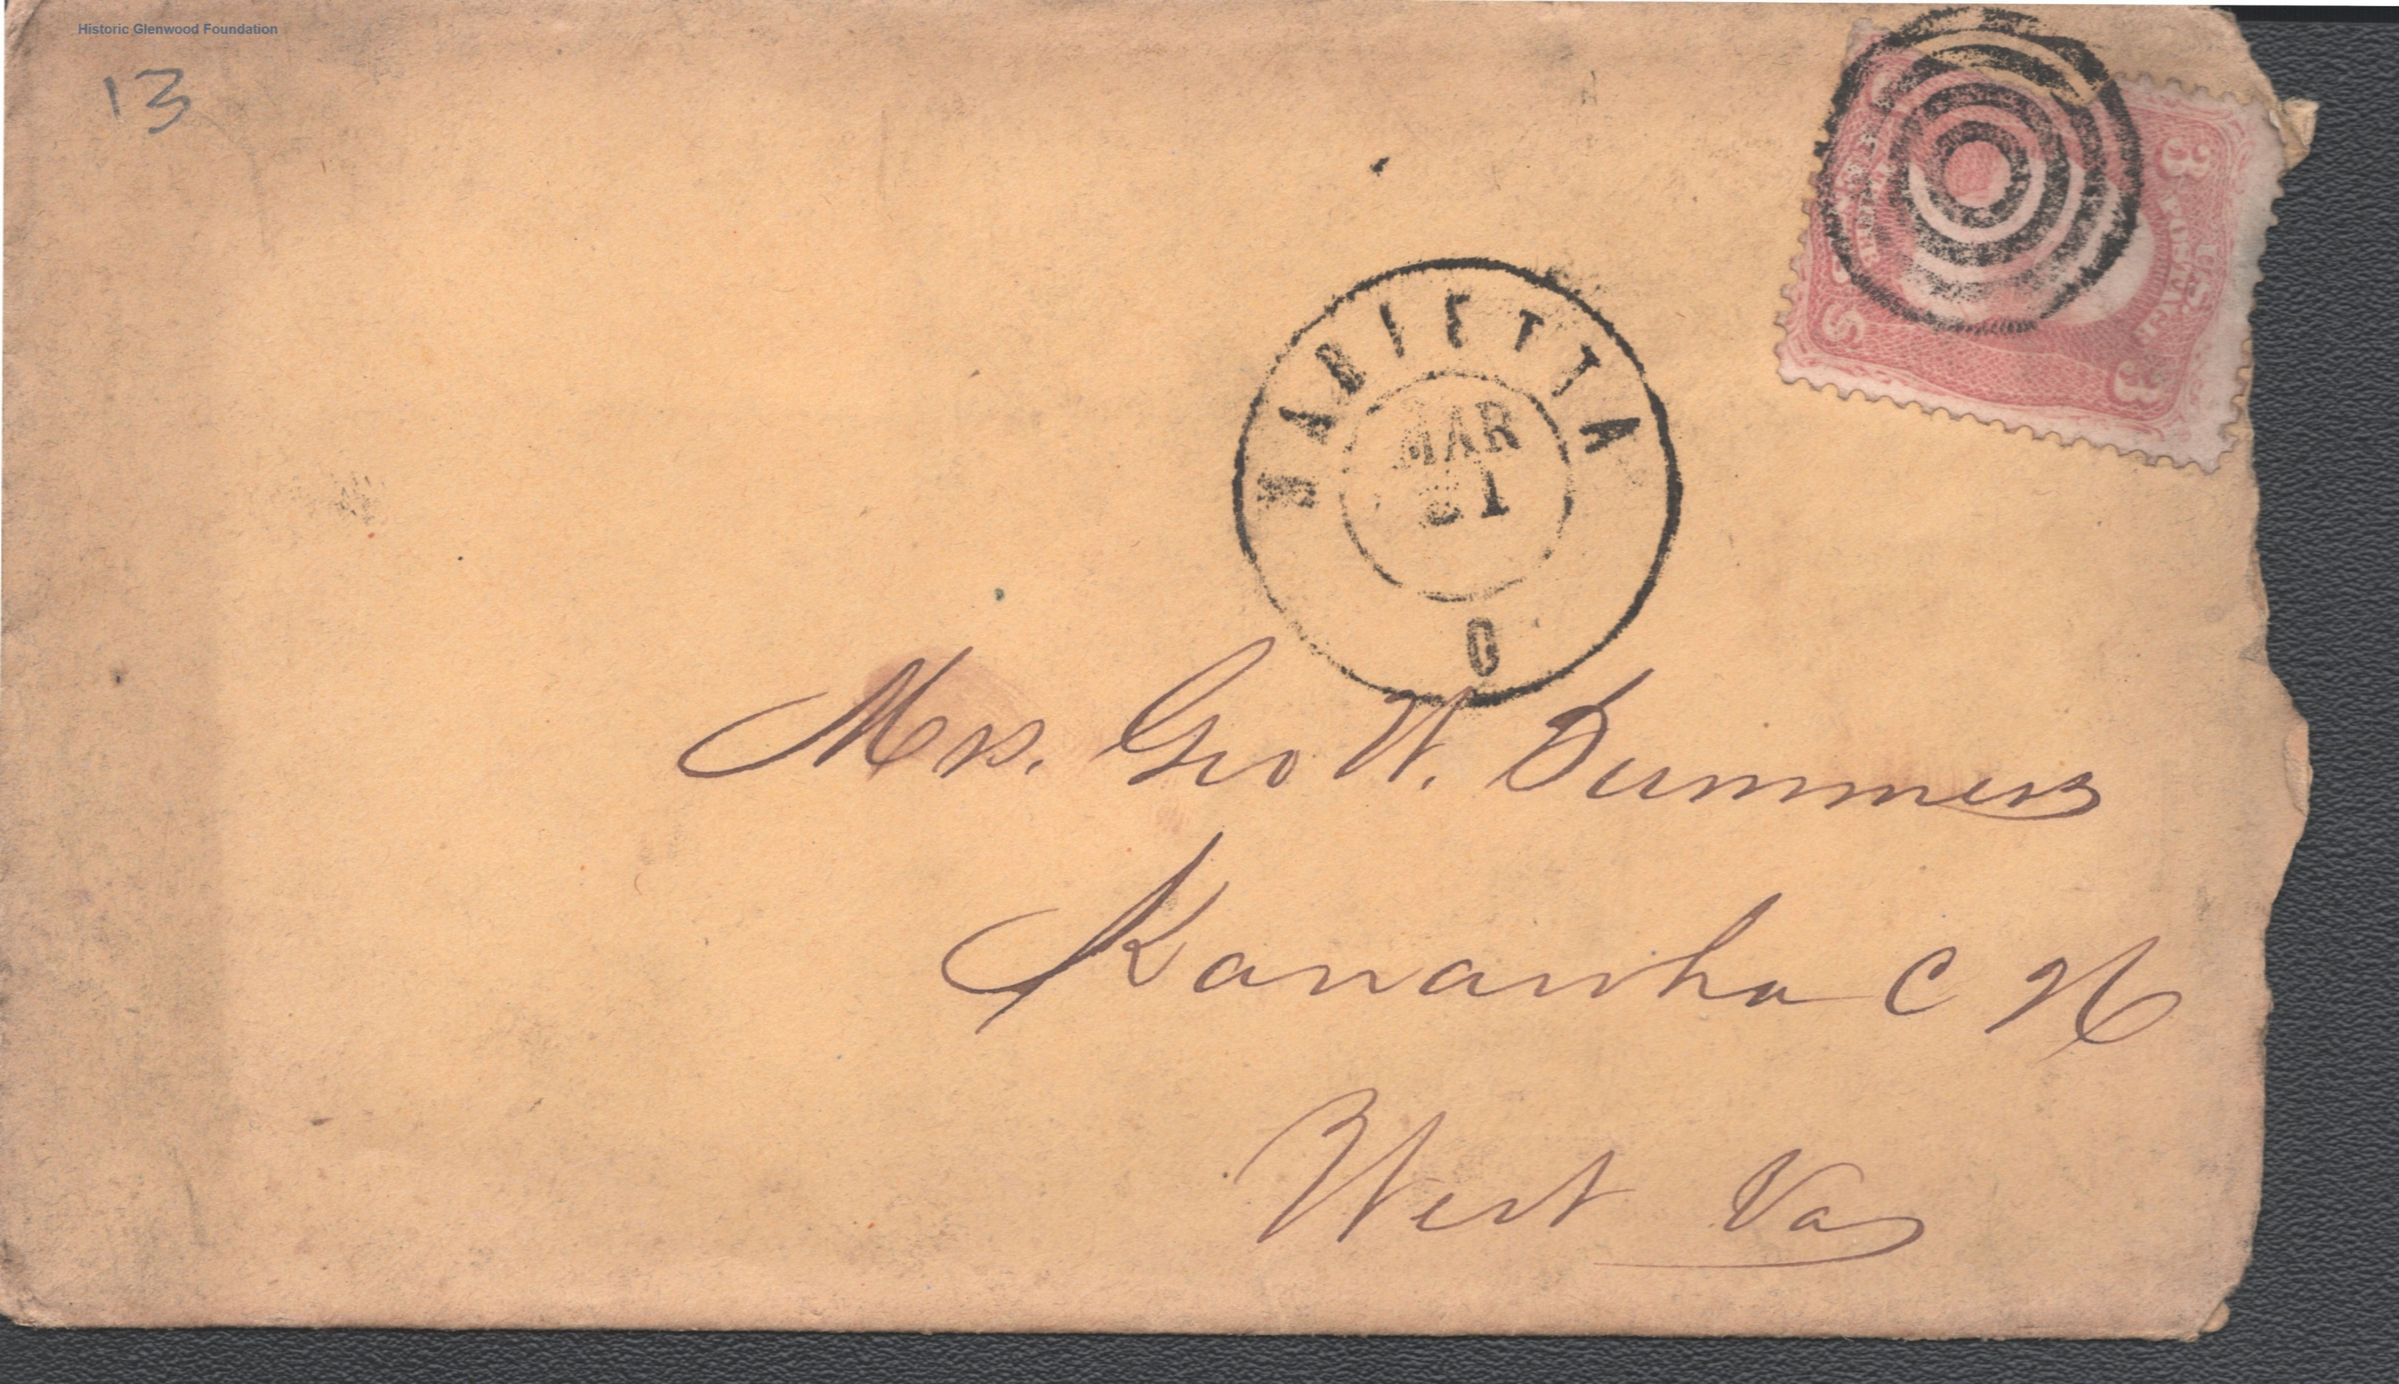 Historic Glenwood Foundation
13
MARIETTA
MAR
1
O
3 U.S. POSTAGE 3
Mrs. Geo W. Summers
Kanawha C H
West Va